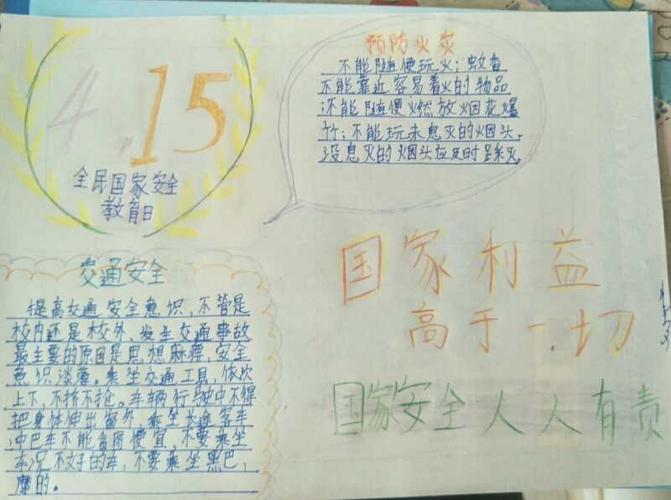 4.15
全民国家安全
教育日
预防火灾
不能随便玩火；蚊香
不能靠近容易着火的物品
；不能随便燃放烟花爆
竹；不能玩未息灭的烟头。
没息灭的烟头应及时踩灭
国家利益
高于一切
国家安全人人有责
交通安全
提高交通安全意识，不管是
校内还是校外，发生交通事故
最主要的原因是思想麻痹，安全
意识淡薄。乘坐交通工具，依次
上下，不挤不抢。车辆行驶中不得
把身体伸出窗外，乘坐长途客车
，中巴车不能贪图便宜，不要乘坐
车况不好的车，不要乘坐黑巴，
摩的。